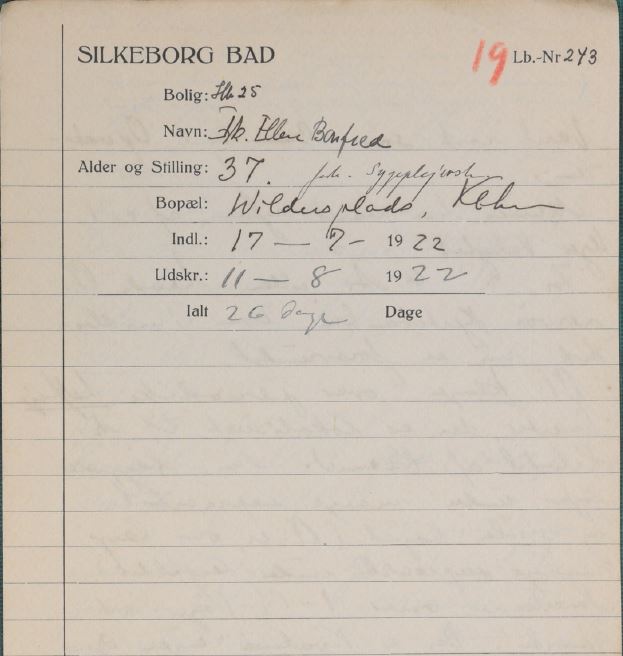 SILKEBORG BAD 19 Lb.-Nr 243
Bolig: 25
Navn: Frk. Ellen Bonfred
Alder og Stilling: 37. Sygeplejerske
Bopæl: Wildersplads, Kbhvn
Indl.: 17 — 7 - 1922
Udskr.: 11 — 8 1922
Ialt 26 Dage Dage